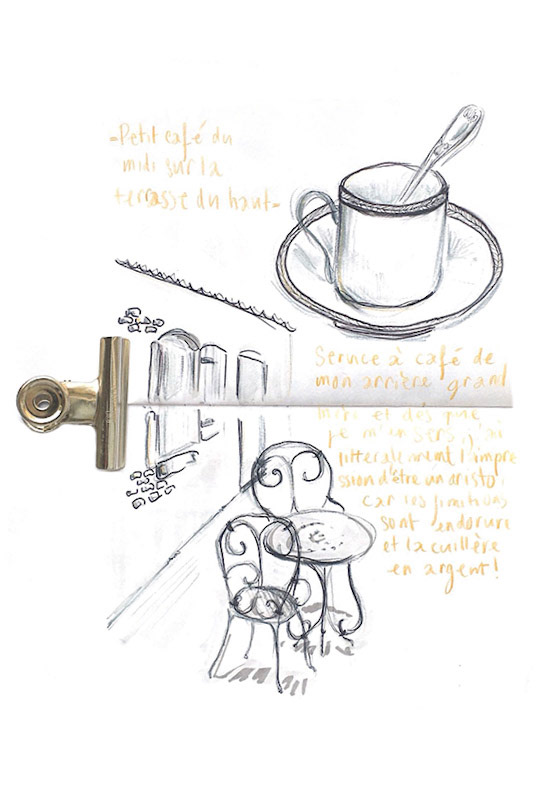 =Petit café du
midi sur la
terrasse du haut=
Service à café de
mon arrière grand
mère et dés que
je m'en sers, j'ai
littéralement l'impre
ssion d'être un aristo
car les finitions
sont en dorure
et la cuillère
en argent!